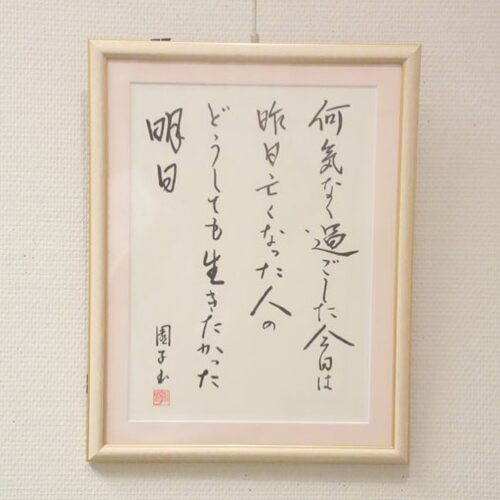 何気なく過ごした今日は
昨日亡くなった人の
どうしても生きたかった
明日
園子書